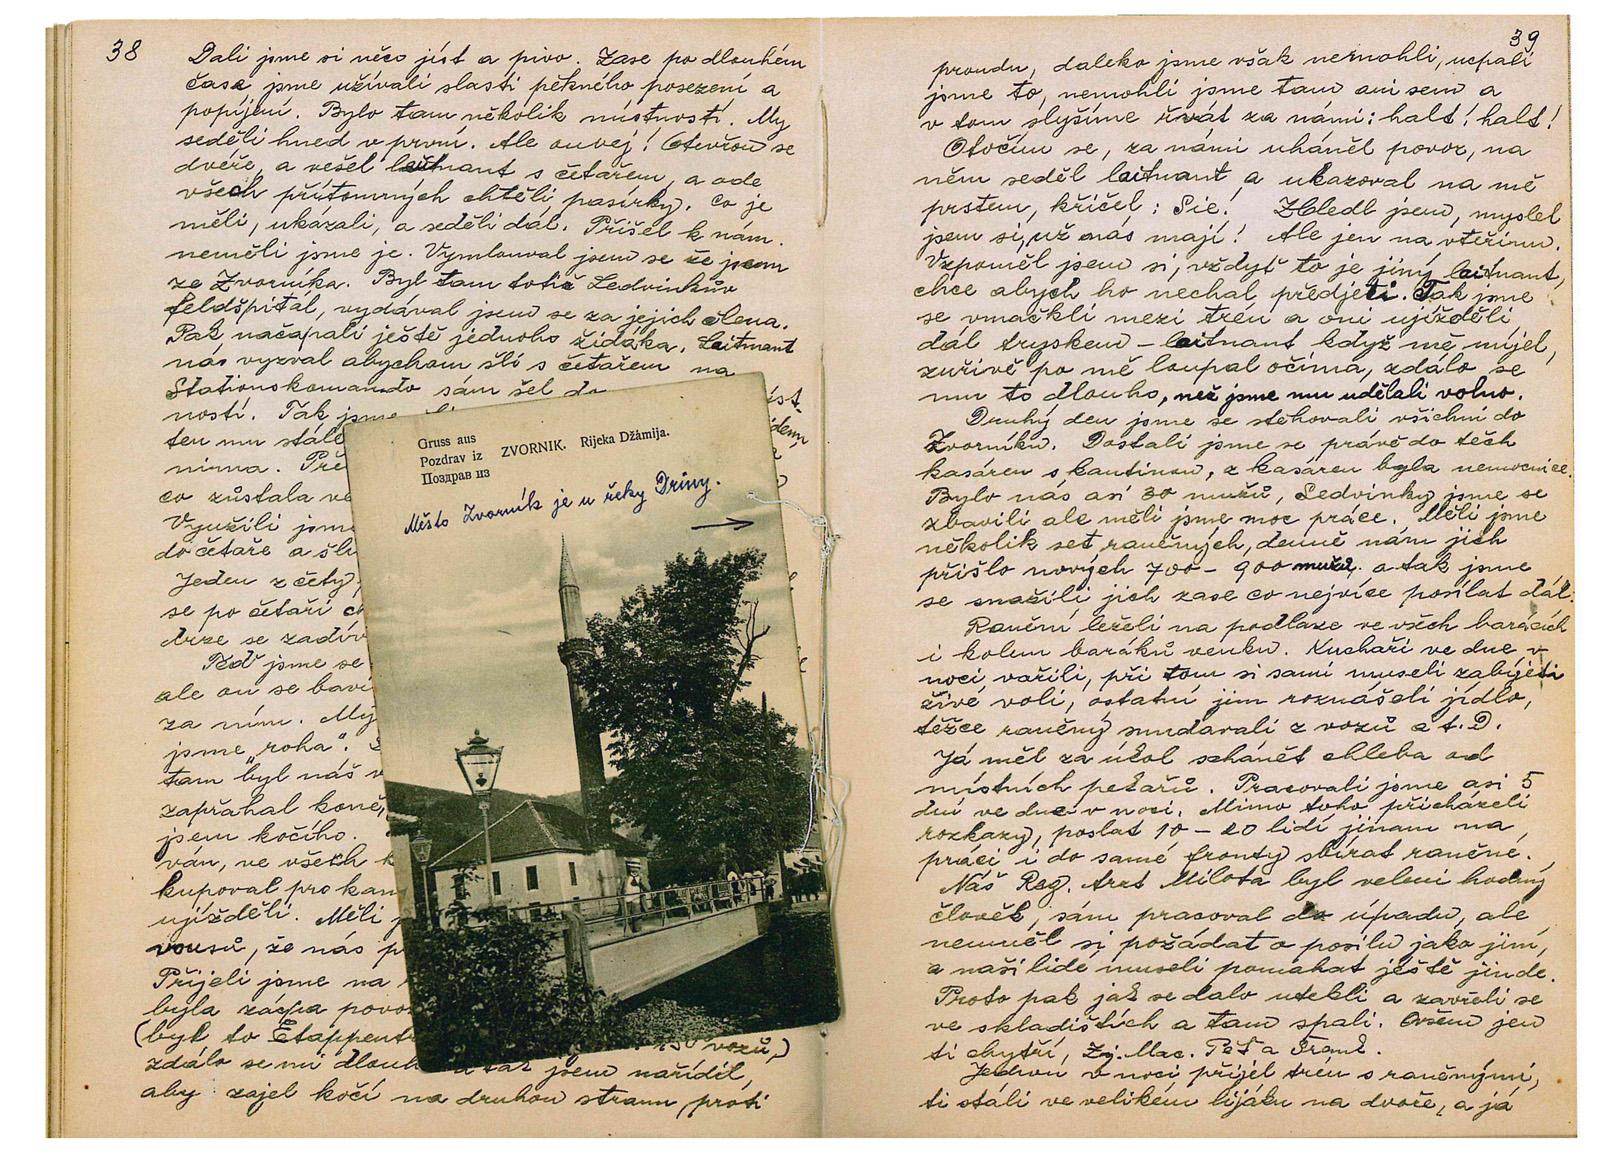 38
Dali jsme si něco jíst a pivo. Zase po dlouhém
čase jsme užívali slasti pěkného posezení a
popíjení. Bylo tam několik místností. My
seděli hned v první. Ale ouvej! Otevřou se
dvéře, a vešel laitnant s četařem, a ode
všech přítomných chtěli pasírky. Co je
měli, ukázali, a seděli dál. Přišel k nám.
neměli jsme je. Vymlouval jsem se že jsem
ze Zvorníka. Byl tam totiž Ledvinkův
feldšpitál, vydával jsem se za jejich člena.
Pak načapali ještě jednoho židáka. Laitnant
nás vyzval abychom šli s četařem na
Stationskomando sám šel do
ností. Tak jsme
ten mu stále
ninna. Pře
co zůstala ve
Využili jsme
do četaře a šli
Jeden z čety
se po četaři
drze se zadív
Teď jsme se
ale on se bavi
za ním. My
jsme "roha".
tam byl náš v
zapřahal koně,
jsem kočího.
ván, ve všech k
kupoval pro kan
ujížděli. Měli
vousů, že nás p
Přijeli jsme na
byla zácpa povo
(byl to Etappent vozů,)
zdálo se mi dlouh a tak jsem nařídil,
aby zajel kočí na druhou stranu, proti
Gruss aus
Pozdrav iz ZVORNIK. Rijeka Džâmija.
Поздрав из
Město Zvorník je u řeky Driny.
39
proudu, daleko jsme však nemohli, ucpali
jsme to, nemohli jsme tam ani sem a
v tom slyšíme řvát za námi: halt! halt!
Otočím se, za námi uháněl povoz, na
něm seděl laitnant a ukazoval na mě
prstem, křičel: Sie! Zbledl jsem, myslel
jsem si, už nás mají! Ale jen na vteřinu.
Vzpoměl jsem si, vždyť to je jiný laitnant,
chce abych ho nechal předjeti. Tak jsme
se vmačkli mezi trén a oni ujížděli
dál tryskem – laitnant když mě míjel,
zuřivě po mě loupal očima, zdálo se
mu to dlouho, než jsme mu udělali volno.
Druhý den jsme se stěhovali všichni do
Zvorníku. Dostali jsme se právě do těch
kasáren s kantinou, z kasáren byla nemocnice.
Bylo nás asi 30 mužů, Ledvinky jsme se
zbavili ale měli jsme moc práce. Měli jsme
několik set raněných, denně nám jich
přišlo nových 700 – 900 mužů, a tak jsme
se snažili jich zase co nejvíce posílat dál.
Ranění leželi na podlaze ve všech barácích
i kolem baráků venku. Kuchaři ve dne v
noci vařili, při tom si sami museli zabíjeti
živé voli, ostatní jim roznášeli jídlo,
těžce raněný sundavali z vozů a t. D.
Já měl za úkol schánět chleba od
místních pekařů. Pracovali jsme asi 5
dní ve dne v noci. Mimo toho přicházeli
rozkazy, poslat 10 – 20 lidí jinam na
práci i do samé fronty sbírat raněné.
Náš Reg. Arzt Milota byl velmi hodný
člověk, sám pracoval do úpadu, ale
neuměl si požádat o posilu jako jiní,
a naši lidé museli pomáhat ještě jinde.
Proto pak jak se dalo utekli a zavřeli se
ve skladištích a tam spali. Ovšem jen
ti chytří, Zj. Mac. Peť a Frant.
Jednou v noci přijel trén s raněnými,
ti stáli ve velikém lijáku na dvoře, a já